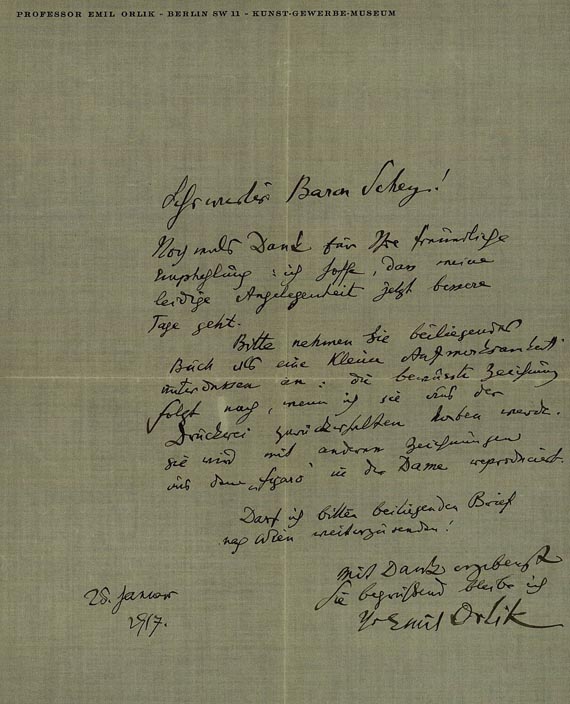 PROFESSOR EMIL ORLIK - BERLIN SW 11 - KUNST-GEWERBE-MUSEUM
Sehr werter Baron Schey!
Nochmals Dank für Ihre freundliche
Empfehlung: ich hoffe, dass meine
leidige Angelegenheit jetzt bessere
Tage geht.
Bitte nehmen Sie beiliegendes
Buch als eine kleine Aufmerksamkeit
unterdessen an: die bewusste Zeichnung
folgt nach, wenn ich sie aus der
Druckerei zurückerhalten haben werde.
Sie wird mit anderen Zeichnungen
aus dem „Figaro" in der Dame reproduciert.
Darf ich bitten beiliegenden Brief
nach Wien weiterzusenden!
Mit Dank ergebenst
Sie begrüssend bleibe ich
Ihr Emil Orlik
28. Januar
1917.